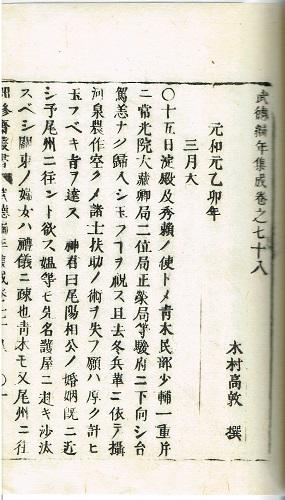 武徳編年集成巻之七十八
木村高敦 撰
元和元乙卯年
三月大
〇十五日淀殿及秀頼ノ使トメ青木民部少輔一重并
ニ常光院大蔵卿局二位局正栄局等駿府ニ下向シ台
駕恙ナク歸入シ玉フヿヲ祝ス且去冬兵革ニ依テ攝
河泉農作空クメ諸士扶助ノ術ヲ失フ願ハ厚ク計ヒ
玉フベキ旨ヲ達ス 神君曰尾陽相公ノ婚姻既ニ近
シ予尾州ニ往ント欲ス媼等モ先名護屋ニ赴キ沙汰
スベシ關東ノ婦女ハ禮儀ニ疎也青木モ又尾州ニ往